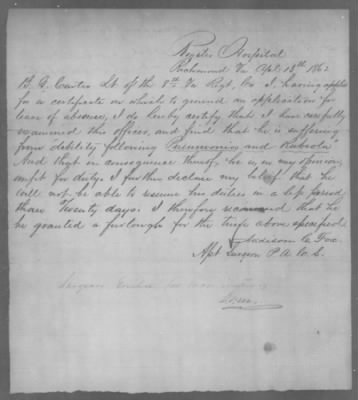 Hospital
Richmond Va Apl. 18th 1862
Lt of the 8th Va Regt, Co I having applied
for a certificate on which to ground an application for
leave of absence, I do hereby certify that I have carefully
examined this officer, and find that he is suffering
from debility following Pneumonia and Rubeola"
And that in consequence thereof he is, in my opinion,
unfit for duty. I further declare my belief that he
will not be able to resume his duties in a less period
than Twenty days. I therefore recommend that he
be granted a furlough for the time above specified
Asst Surgeon P. A. C. S.
Surgeon